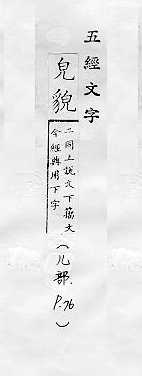 五經文字
皃貌
二同上說文下籀文
今經典用下字
(儿部. P.76)